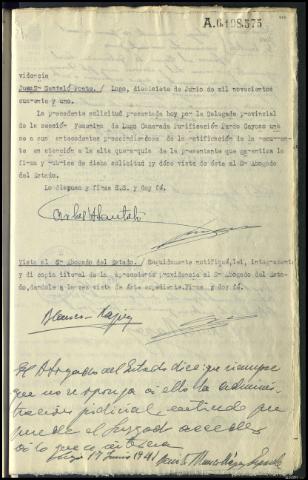 A.0198575
videncia
Juez Sr Santaló Ponte. / Lugo, diecisiete de Junio de mil novecientos
cuarenta y uno.
La precedente solicitud presentada hoy por la Delegada provincial
de la sección Femenina de Lugo Camarada Purificación Pardo Gayoso una
se a sus antecedentes prescindiendose de la ratificación de la recurren-
te en atención a la alta gerarquia de la presentante que garantiza la
firma y rubrica de dicha solicitud ;y dése vista de ésta al Sr Abogado
del Estado.
Lo dispuso y firma S.S. y doy fé.
Carlos Santaló
Vista al Sr Abogado del Estado. / Seguidamente notifiqué, leí, integramente
y dí copia literal de la antecedente providencia al Sr Abogado del Esta-
do, dandole a la vez vista de éste expediente. Firma y doy fé.
El Abogado del Estado dice que siempre
que no se oponga a ello la adminis-
tración judicial entiende que
puede el Juzgado acceder
a lo que se interesa
Lugo 17 Junio 1941